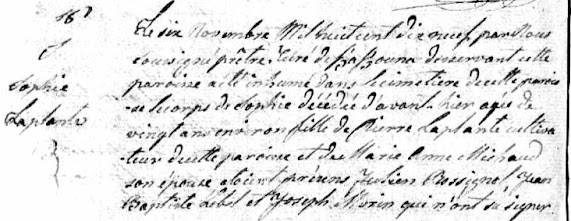 S
Sophie
Laplante
Le six Novembre Mil huit cent dix neuf par Nous
soussigné prêtre Curé de desservant cette
paroisse a été inhumé dans le cimetière de cette parois
-se le corps de Sophie décédée d'avant-hier agée de
vingt ans environ fille de Pierre Laplante cultiva
-teur de cette paroisse et de Marie Anne Michaud
son épouse etoient présens Julien Rossignol Jean
Baptiste Lebel et Joseph Morin qui n'ont su signer